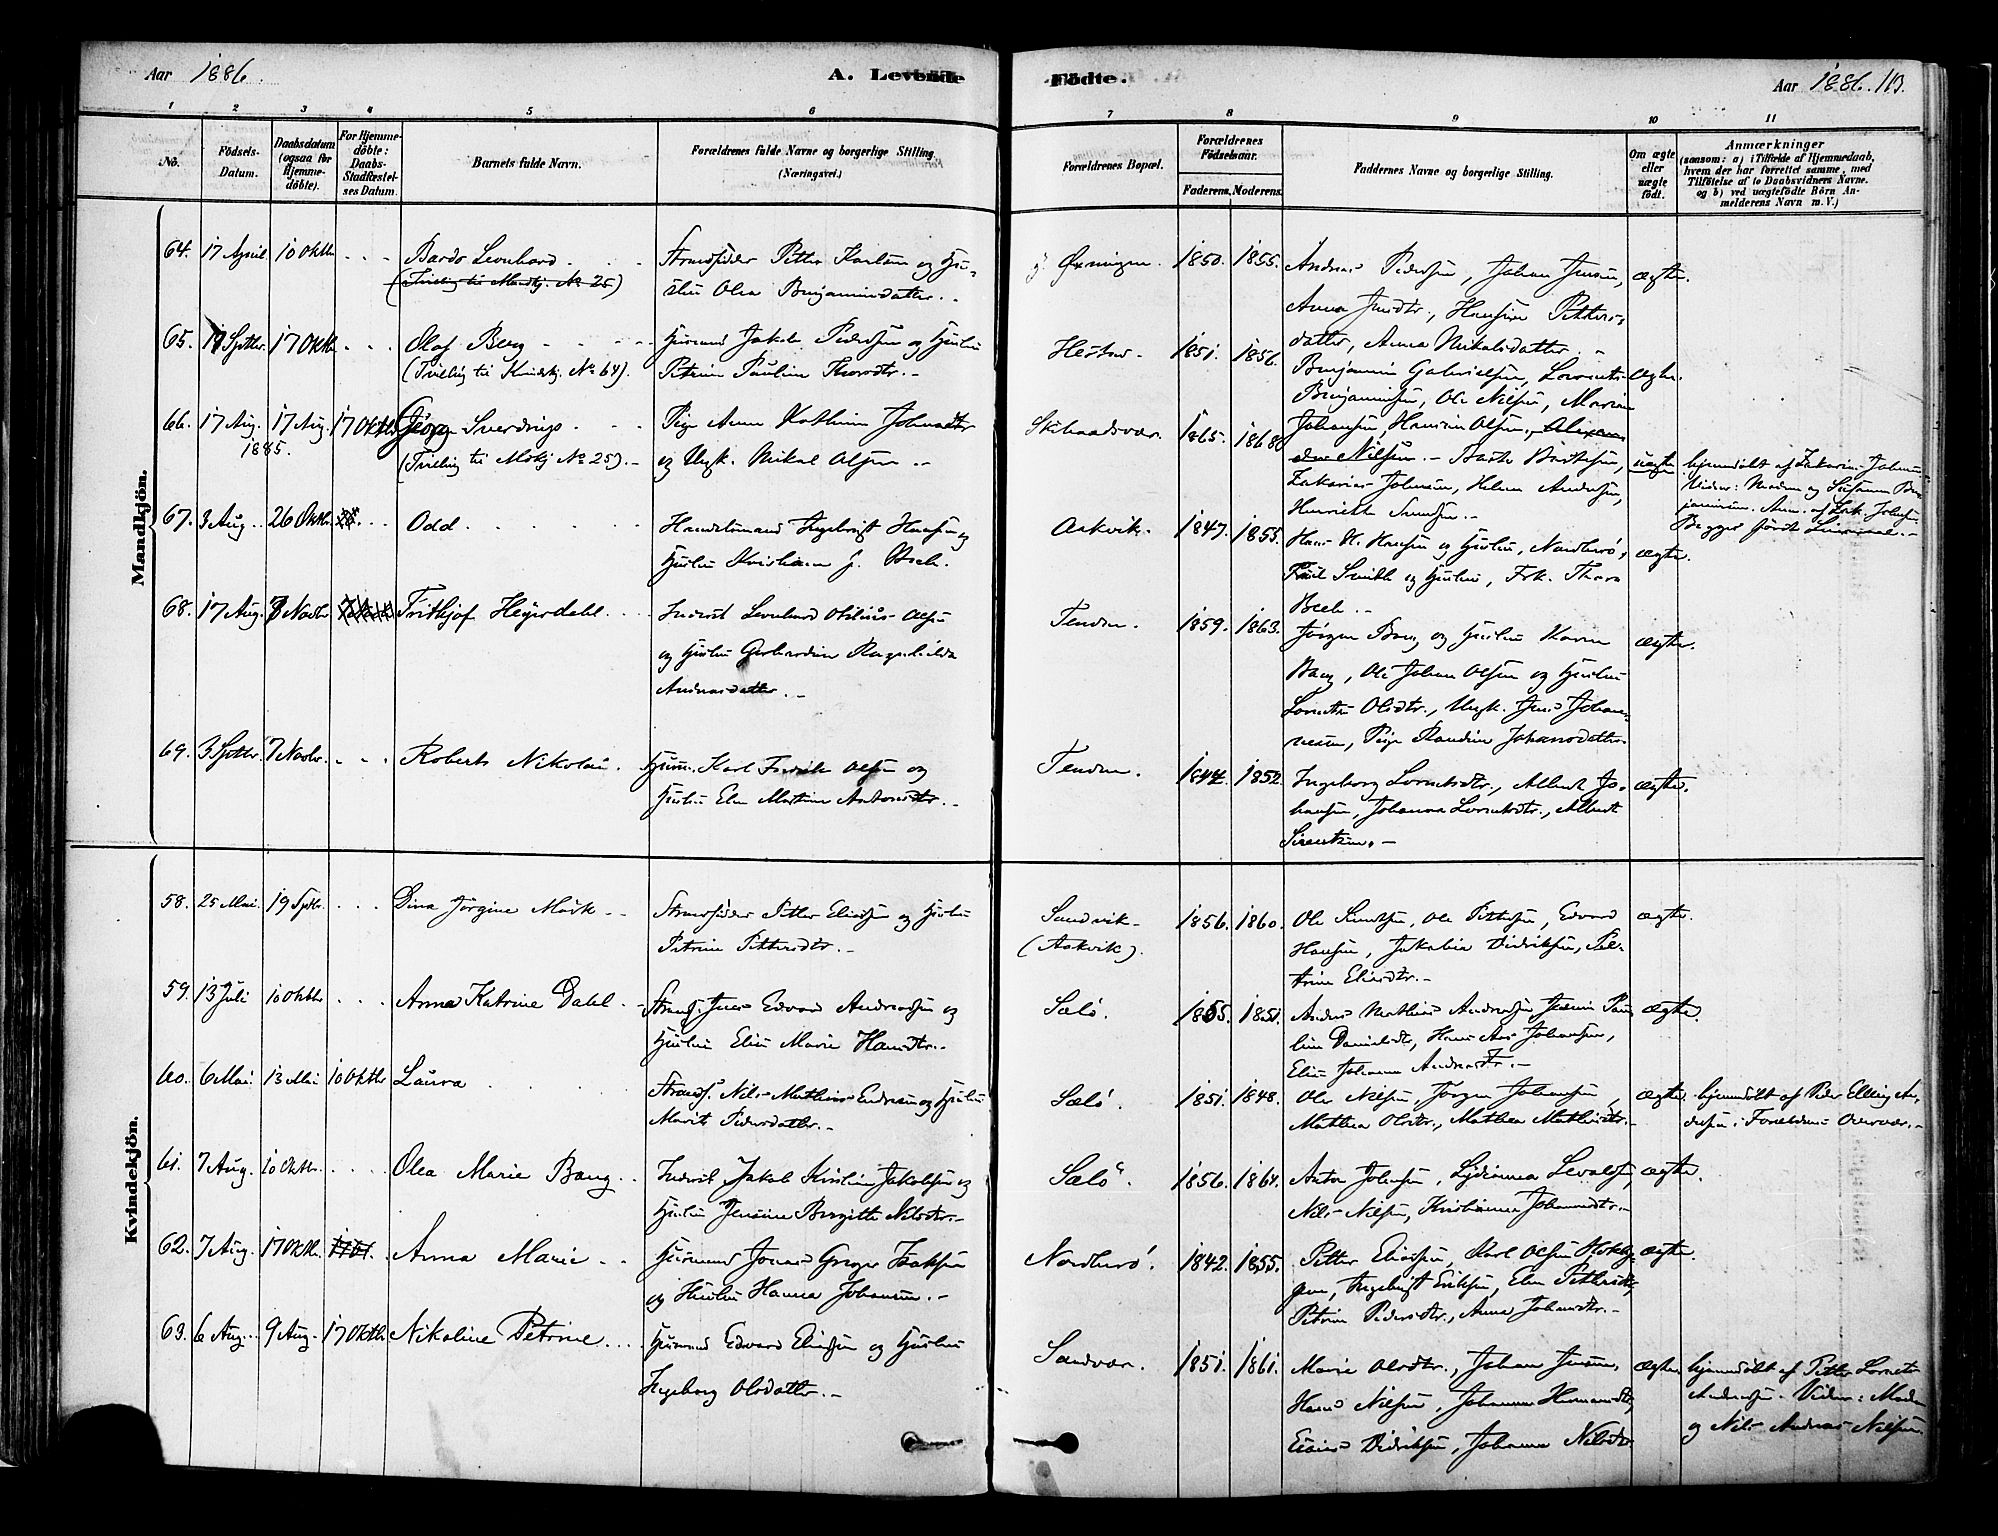 Aar 1886.
A. Levende
Födte.
Aar 1886. 113.
1 2 3 4 5 6 7 8 9 10 11
No.
Födsels-
Datum.
Daabsdatum
(ogsaa for
Hjemme-
döbte).
For Hjemme-
döbte:
Daabs-
Stadfæstel-
ses Datum.
Barnets fulde Navn.
Forældrenes fulde Navne og borgerlige Stilling
(Næringsvei.)
Forældrenes Bopæl.
Forældrenes
Födselsaar.
Faderens. Moderens.
Faddernes Navne og borgerlige Stilling.
Om ægte
eller
uægte
födt.
Anmærkninger
(saasom: a) i Tilfælde af Hjemmedaab,
hvem der har forrettet samme, med
Tilföielse af to Daabsvidners Navne.
og b) ved uægtefödte Börn An-
melderens Navn m. V.)
Mandkjön.
64. 17 April 10 Oktbr
Bardo Leonhard
(Tvilling til Mandkj. No 25)
Strandsidder Petter Karlsen og Hu-
stru Olea Benjaminsdatter.
Øxningen. 1850. 1855.
Andreas Pedersen, Johan Jensen,
Anna Jensdtr., Hansine Petters-
datter, Anna Nikolaisdatter.
ægte.
65. Septbr. 17 Oktbr
Olaf Berg
(Tvilling til Kvindekj. No 64).
Husmand Jakob Pedersen og Hustru
Petrine Pauline Thorsdtr.
1851. 1856.
Benjamin Gabrielsen, Lorents
Benjaminsen, Ole Nilsen, Marian
Johansen, Hansine Olsen, Alexan-
der Nilsen.
ægte.
66. 17 Aug. 1885. 17 Aug. 17 Oktbr
Georg Sverdrup
(Tvilling til Mdkj No 25).
Pige Anne Kathrine Johnsdtr
og Ungk. Mikal Olsen
1865. 1868
Zakarias Johnsen, Helene Andersen,
Henriette
uægte
hjemdöbt af Zakarias Johnsen
67. 3 Aug. 26 Oktbr.
Odd
Handelsmand Ingebrigt Hansen og
Hustru Kristiane J. Bech.
Aakvik. 1847. 1855.
Hans H. Hansen og Hustru, Nordherö,
Smith og Hustru, Frk. Thora
Bech.
ægte.
68. 17 Aug. 7 Novbr.
Frithjof Heyerdahl
Inderst Leonhard Otilius Olsen
og Hustru Gerhardine Ragnhilda
Andreasdatter.
Tenden. 1859. 1863.
Jörgen Bang og Hustru Karen
Bang, Ole Johan Olsen og Hustru
Lorentse Olsdtr., Ungk. Jens Johan-
nessen, Pige Randine Johansdatter.
ægte.
69. 3 Septbr. 7 Novbr.
Roberts Nikolai.
Husm. Karl Fredrik Olsen og
Hustru Elen Martine Antonsdtr.
Tenden. 1844. 1852.
Ingeborg Lorntsdtr., Albert Jo-
hansen, Johanna Lorntsdtr., Albert
Sivertsen.
ægte.
Kvindekjön.
58. 25 Mai. 19 Septbr.
Dina Jörgine Mörk
Strandsidder Petter Eliassen og Hustru
Petrine Pettersdtr.
Sandvik
(Aakvik).
1856. 1860.
Ole Knudsen, Ole Pettersen, Edvard
Hansen, Jakobia Didriksen, Pet-
trine Eliasdtr.
ægte.
59. 13 Juli 10 Oktbr.
Anna Katrine Dahl
Strands. Jens Edvard Andreassen og
Hustru Elen Marie Hansdtr.
Sælö. 1855. 1851.
Anders Mathias Andersen, Pau-
line Danielsdtr, Hans Johansen,
Johanna Andreasdtr.
ægte.
60. 6 Mai 13 Mai 10 Oktbr
Laura
Strands. Nils Mathias Endresen og Hustru
Marit Pedersdatter.
Sælö. 1851. 1848.
Ole Nilsen, Jörgen Johansen,
Mathea Olsdtr., Mathea Mathisdtr.
ægte.
hjemdöbt af Peder Elling An-
dersen i Forældrenes Overvær.
61. 7 Aug. 10 Oktbr.
Olea Marie Bang
Inderst Jakob Kristian Jakobsen og
Hustru Jensine Birgitte Nilsdtr.
Sælö. 1856. 1864.
Anton Johnsen, Lydianna Levaldsen,
Nils Nilsen, Kristianna Johannesdtr.
ægte.
62. 7 Aug. 17 Oktbr.
Anna Marie
Husmand Jonas Greger Isaksen
og Hustru Hanna Johansen.
Nordherö. 1842. 1855.
Petter Eliassen, Karl Olsen
Ingebrigt Eriksen, Elen Pettersdtr,
Petrine Pedersdtr., Anna Johansdtr.
ægte.
63. 6 Aug. 9 Aug. 17 Oktbr
Nikoline Petrine
Husmand Edvard Eliassen og Hustru
Ingeborg Olsdatter.
Sandvær. 1851. 1861.
Marie Olsdtr., Johan Jensen,
Hans Nilsen, Johanna Hermansdtr,
Elias Didriksen, Johanna Nilsdtr.
ægte.
hjemdöbt af Petter Lornts
Andreassen. Vidner: Moderen
og Nils Andreas Nilsen.